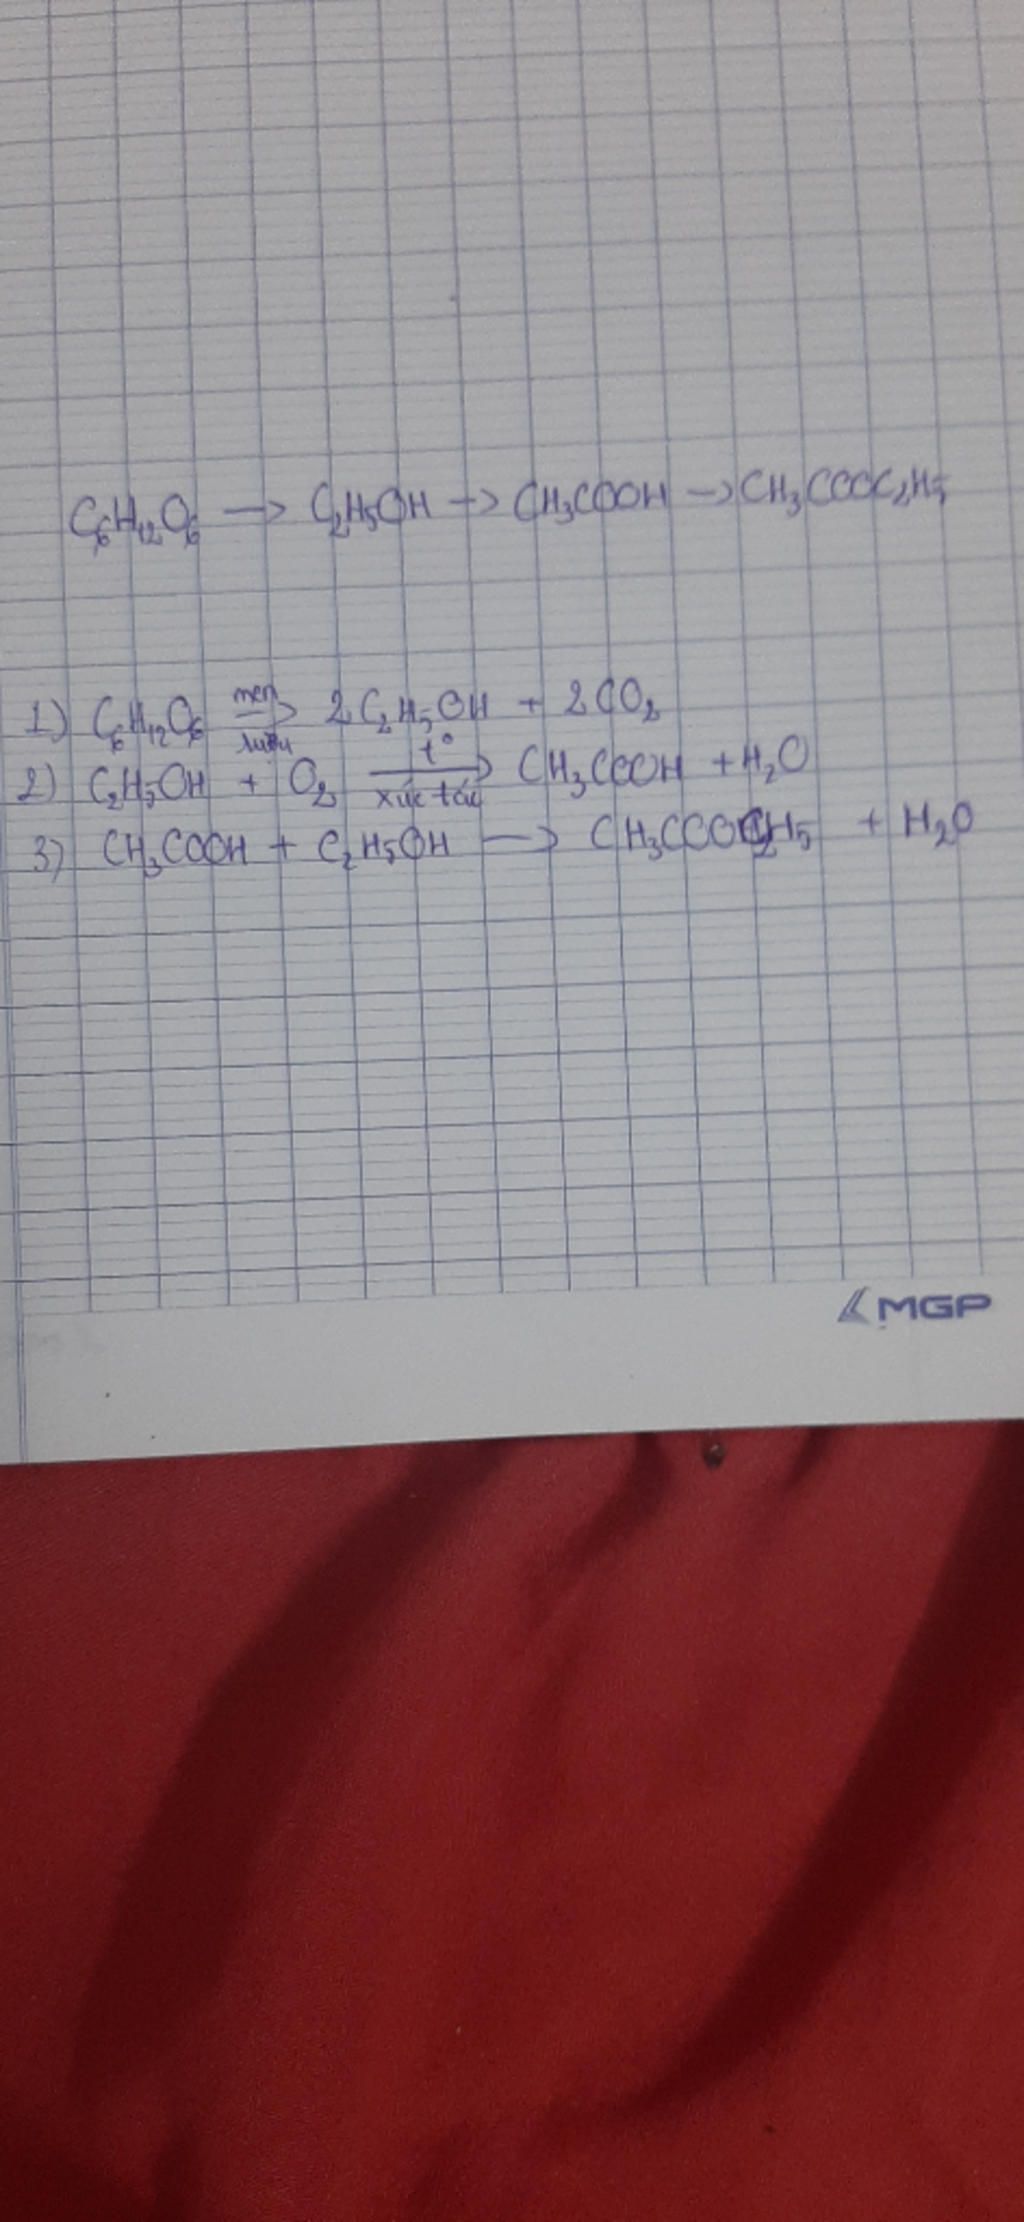 C₆H₁₂O₆ → C₂H₅OH → CH₃COOH → CH₃COOC₂H₅
1) C₆H₁₂O₆ men → rượu 2C₂H₅OH + 2CO₂
2) C₂H₅OH + O₂ t° → xúc tác CH₃COOH + H₂O
3) CH₃COOH + C₂H₅OH → CH₃COOC₂H₅ + H₂O
MGP